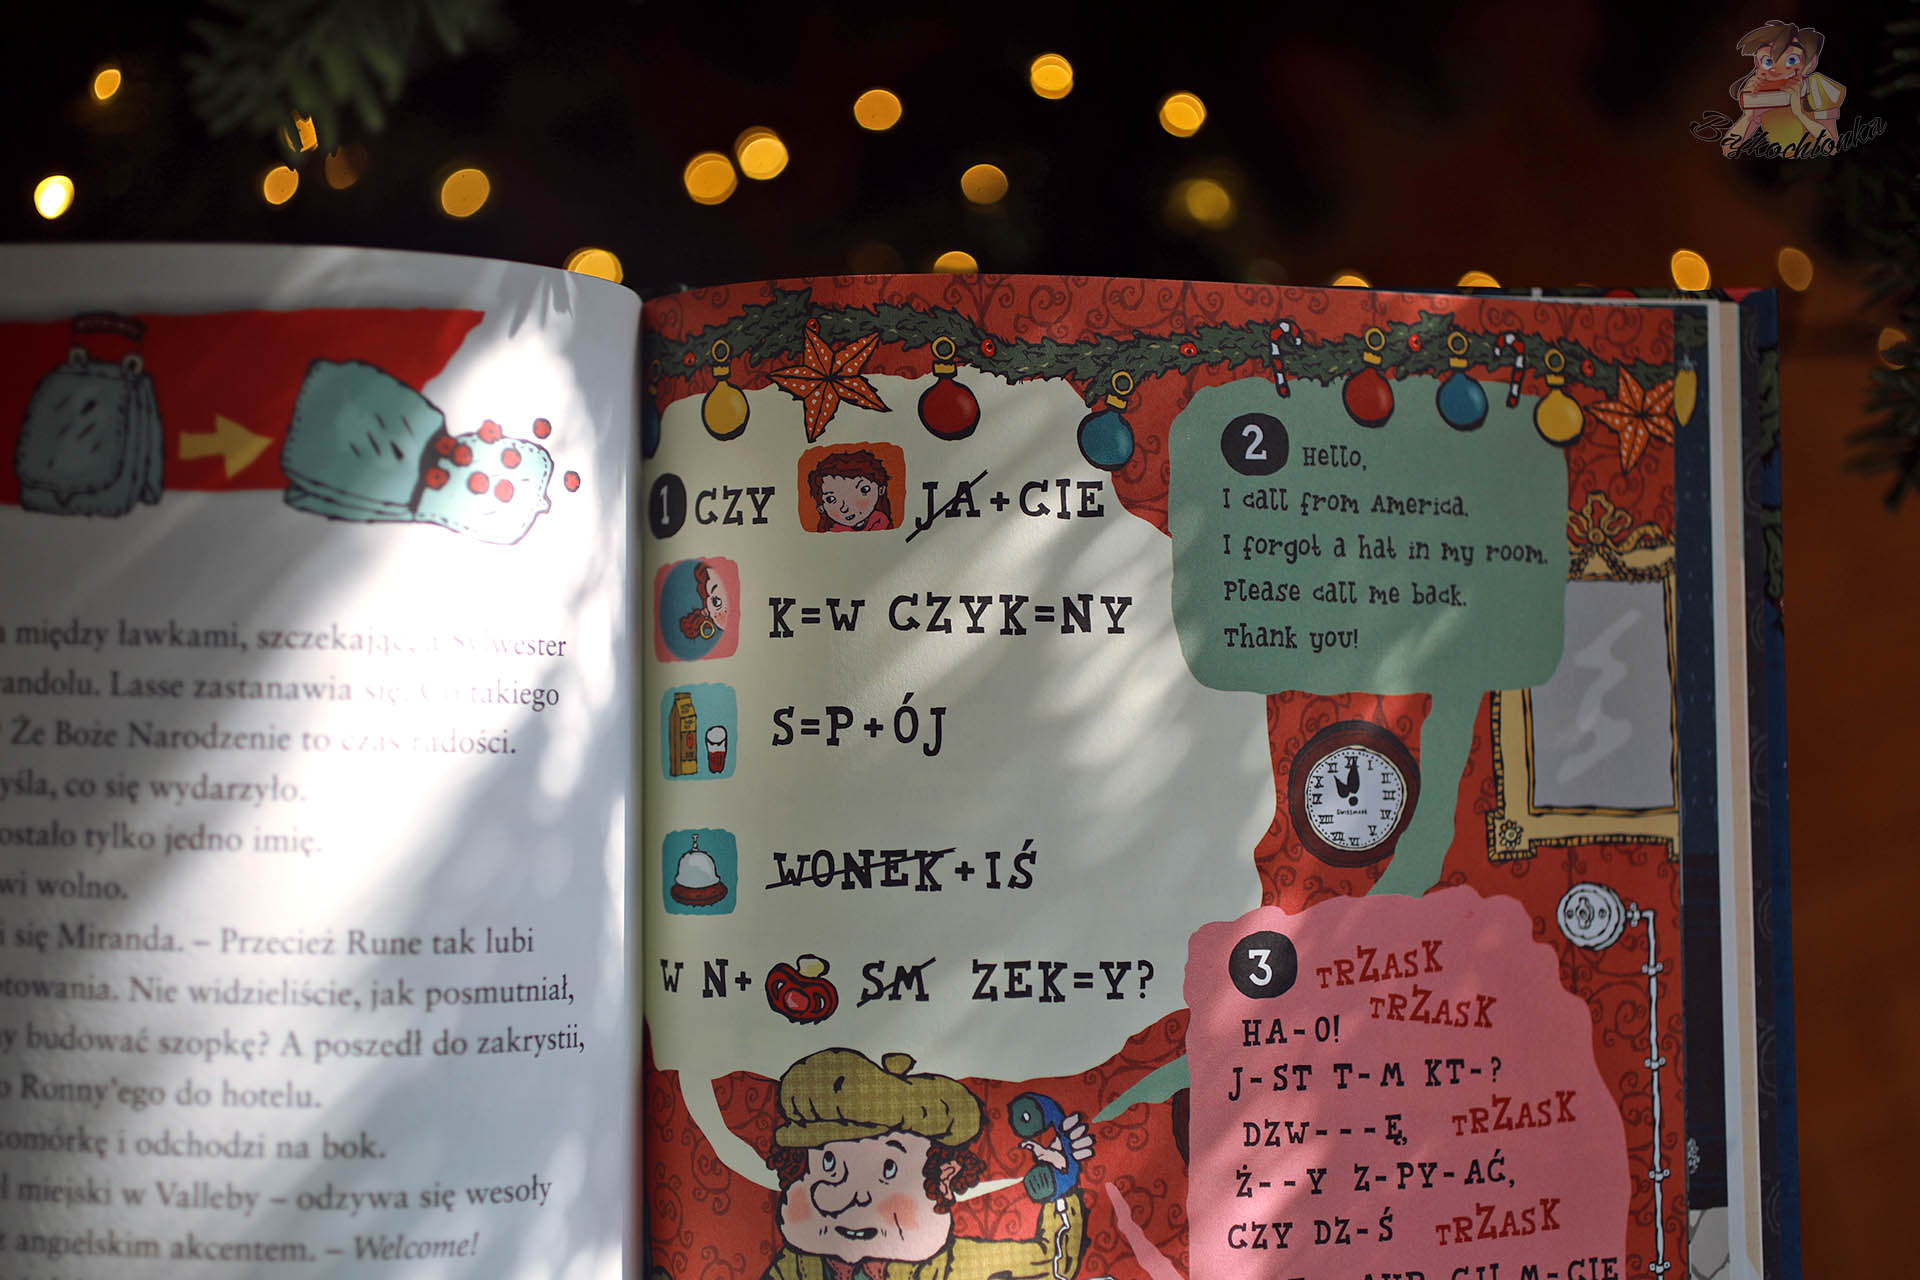 Bajkochłonka
między ławkami, szczekając, a Sylwester
Lasse zastanawia się. Co takiego
Że Boże Narodzenie to czas radości.
co się wydarzyło.
tylko jedno imię.
wolno.
się Miranda. – Przecież Rune tak lubi
Nie widzieliście, jak posmutniał,
budować szopkę? A poszedł do zakrystii,
Ronny'ego do hotelu.
i odchodzi na bok.
miejski w Valleby – odzywa się wesoły
angielskim akcentem. – Welcome!
1 CZY JA + CIE
K=W CZYK=NY
S=P+ÓJ
WONEK + IŚ
W N+ SM ZEK=Y?
2 Hello,
I call from America.
I forgot a hat in my room.
Please call me back.
Thank you!
3 TRZASK
TRZASK
HA-O!
J-ST T-M KT-?
DZW---Ę, TRZASK
Ż--Y Z-PY-AĆ,
CZY DZ-Ś TRZASK